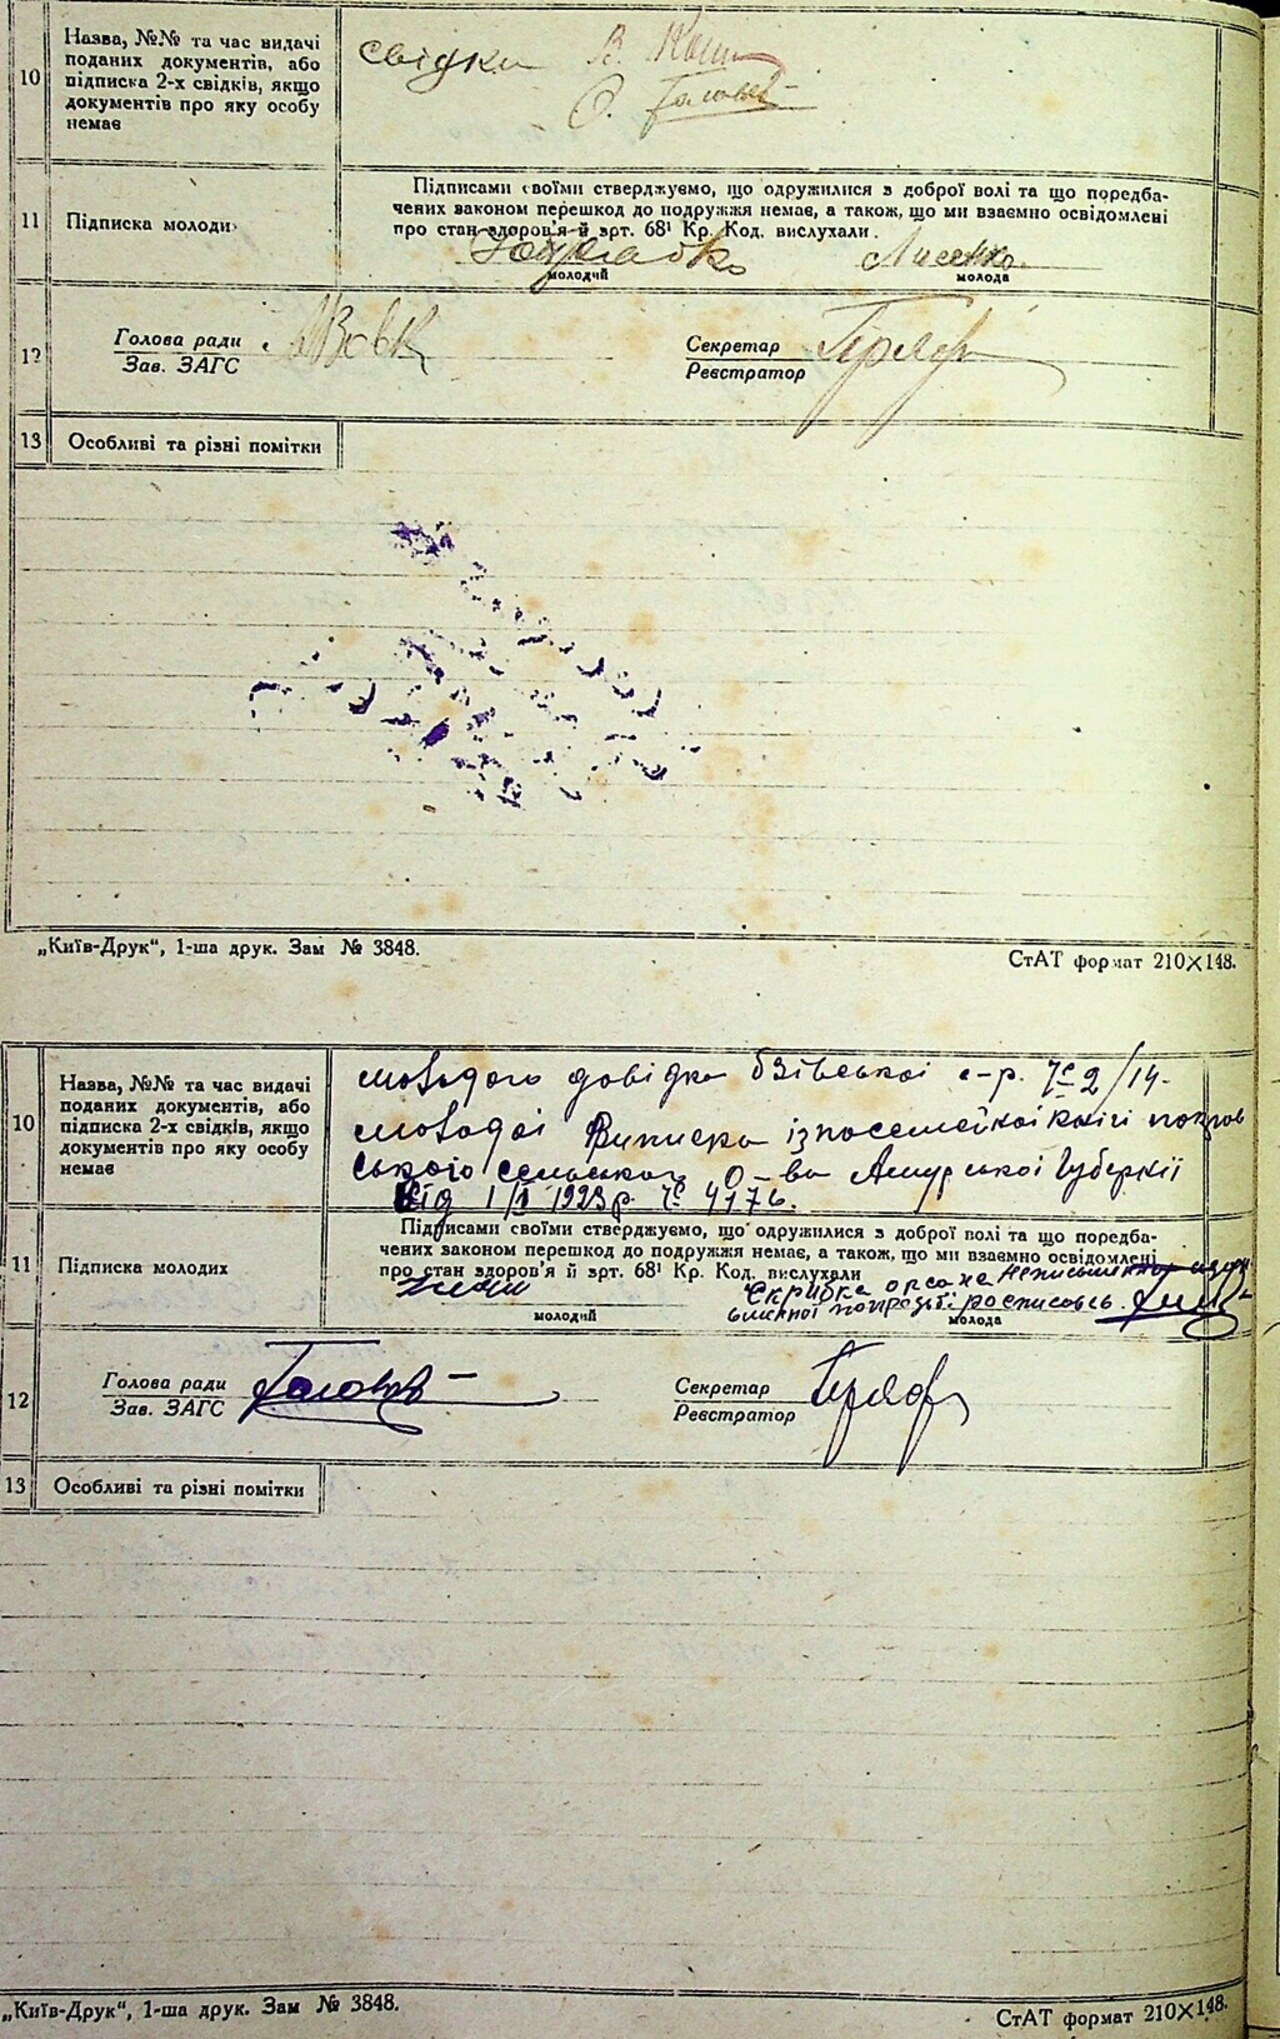 10
Назва, №№ та час видачі
поданих документів, або
підписка 2-х свідків, якщо
документів про яку особу
немає
свідки
11
Підписка молоди
Підписами своїми стверджуємо, що одружилися з доброї волі та що поредба-
чених законом перешкод до подружжя немає, а також, що ми взаємно освідомлені
про стан здоров'я й зрт. 68¹ Кр. Код. вислухали.
Лисенко
молодий
молода
12
Голова ради
Зав. ЗАГС
Вовк
Секретар
Реєстратор
13
Особливі та різні помітки
„Київ-Друк“, 1-ша друк. Зам № 3848.
СтАТ формат 210×148.
10
Назва, №№ та час видачі
поданих документів, або
підписка 2-х свідків, якщо
документів про яку особу
немає
молодого довідка бзівської с-р. № 2/14-
молодої Виписка із посемейної книги покров
ського сельского О-ва Амурської Губернії
від 1/ 1923 р. № 4176.
11
Підписка молодих
Підписами своїми стверджуємо, що одружилися з доброї волі та що поредба-
чених законом перешкод до подружжя немає, а також, що ми взаємно освідомлені
про стан здоров'я й зрт. 68¹ Кр. Код. вислухали
молодий
молода
12
Голова ради
Зав. ЗАГС
Секретар
Реєстратор
13
Особливі та різні помітки
„Київ-Друк“, 1-ша друк. Зам № 3848.
СтАТ формат 210×148.